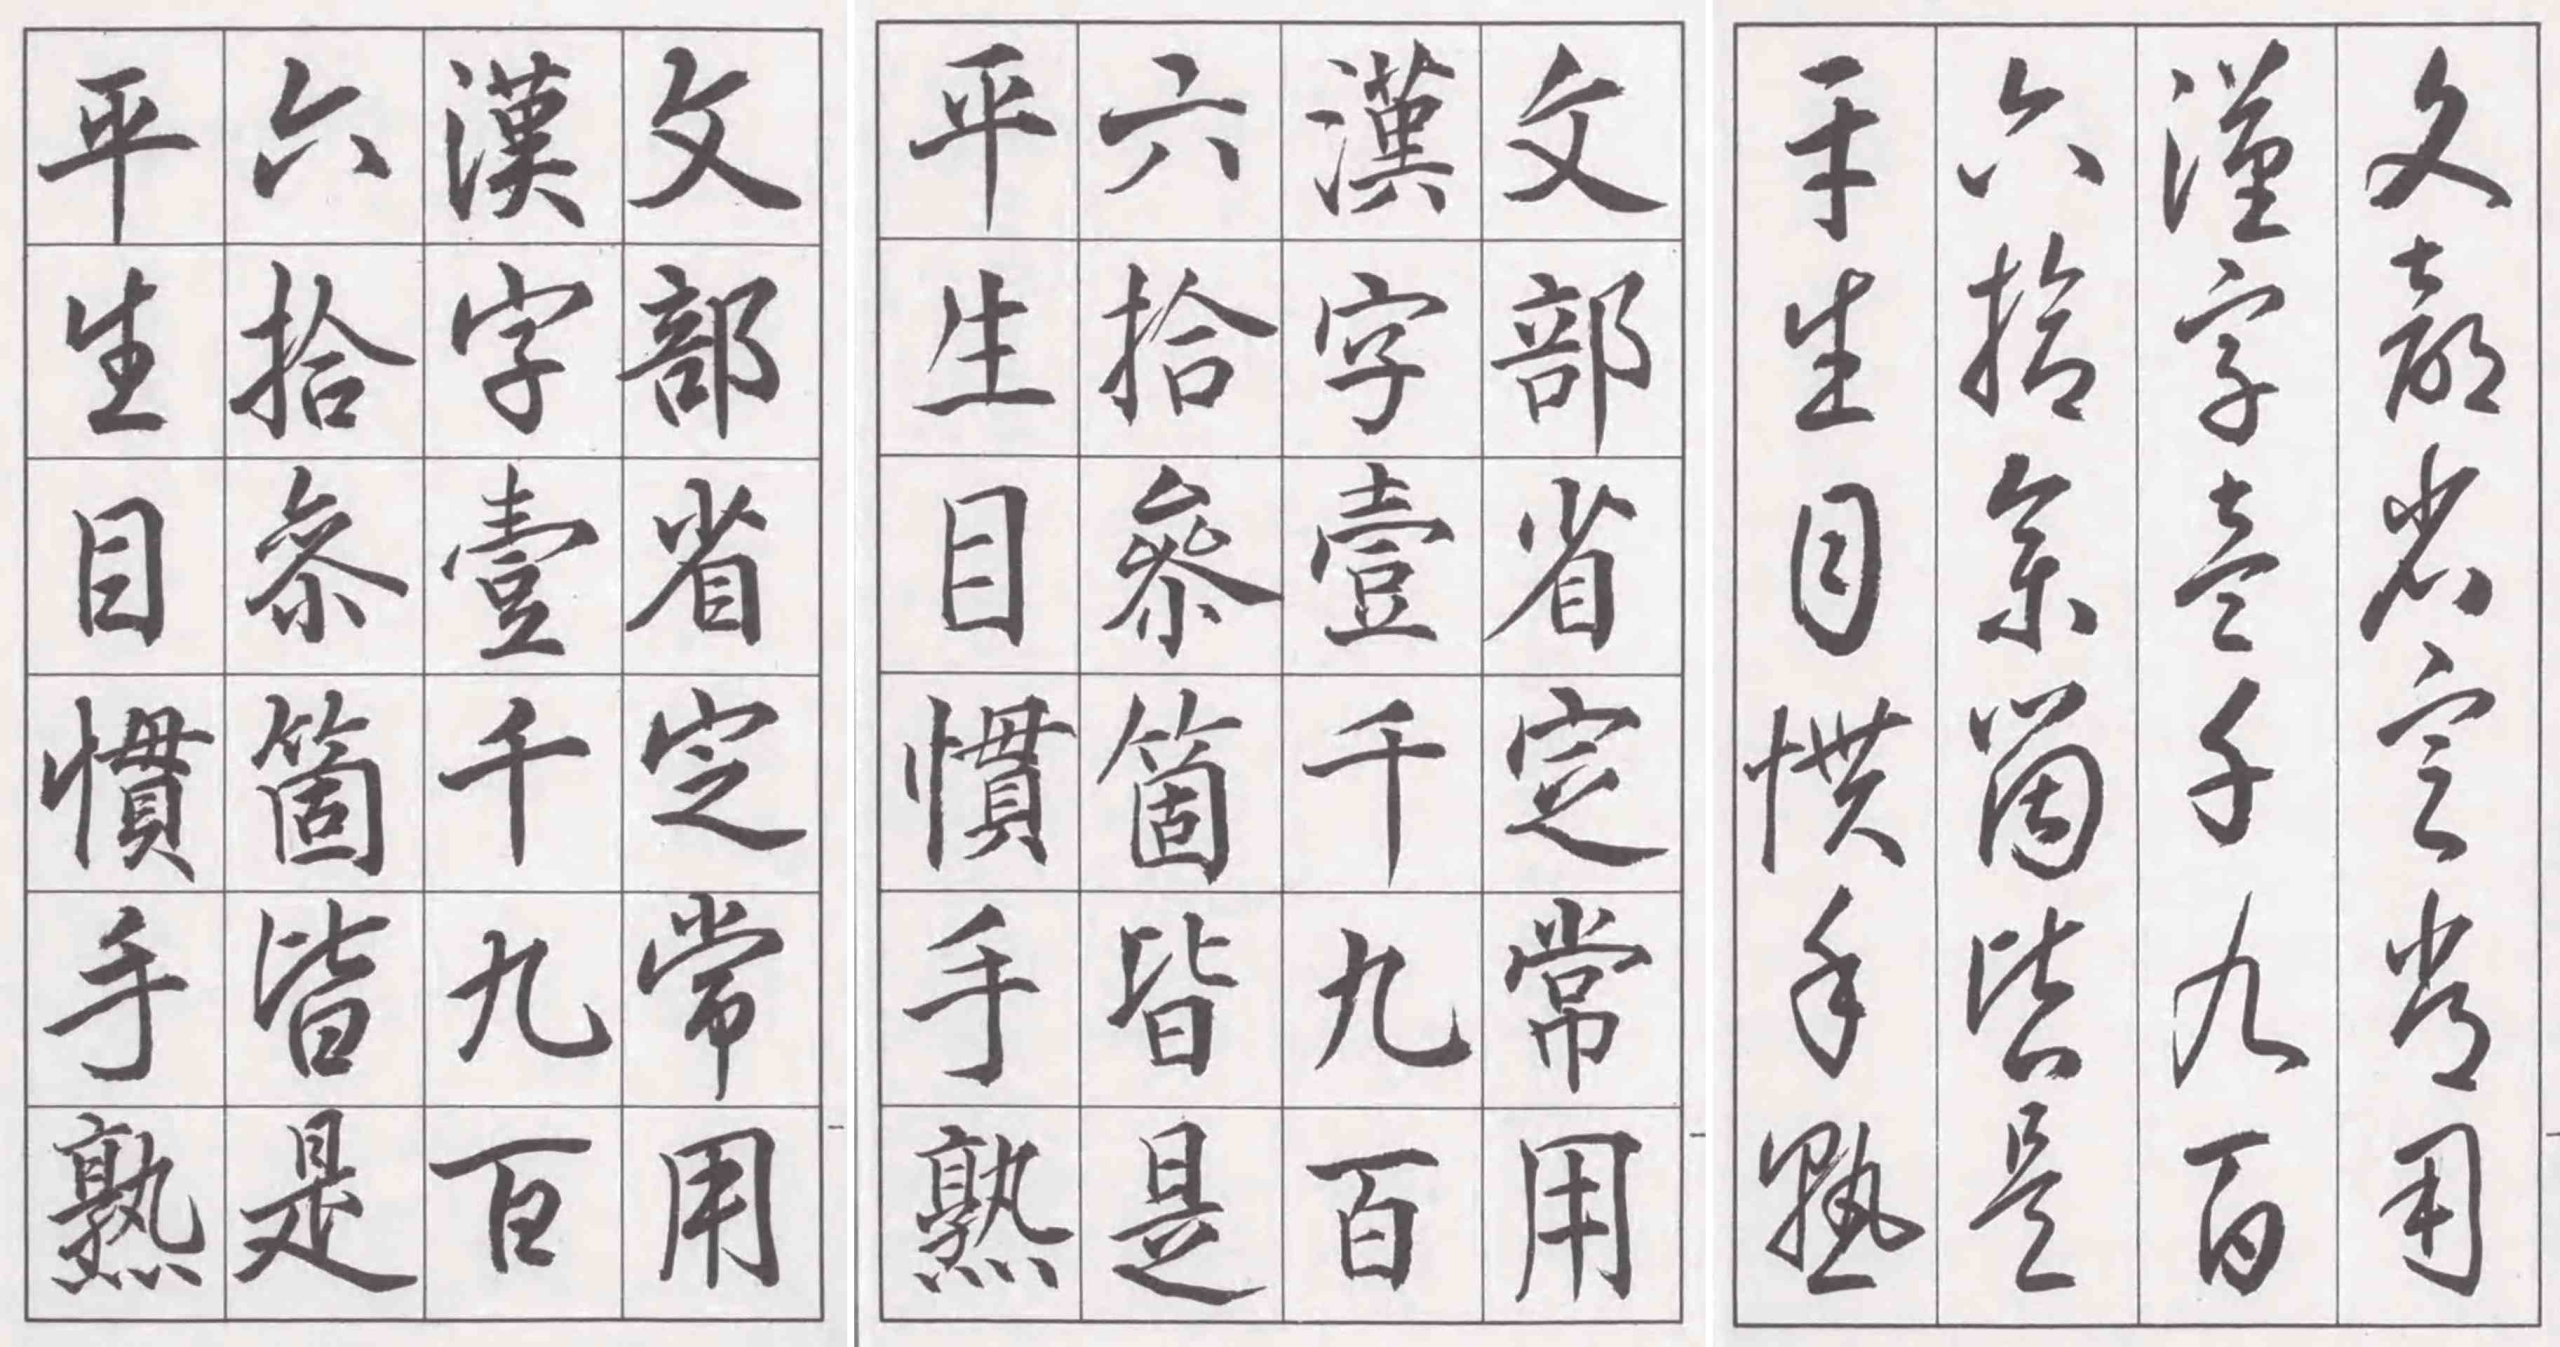 文部省定常用
漢字壹千九百
六拾叅箇皆是
平生目慣手熟
文部省定常用
漢字壹千九百
六拾參箇皆是
平生目慣手熟
文部省定常用
漢字壹千九百
六拾参箇皆是
平生目慣手熟